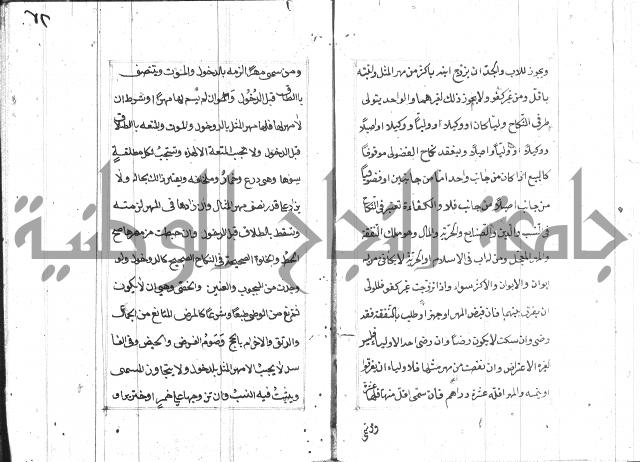 ويجوز للاب والجد ان يزوج ابنه باكثر من مهر المثل وابنته
باقل ومن غير كفو ولا يجوز ذلك لغيرهما والواحد يتولى
طرفي النكاح وليا كان او وكيلا او وليا ووكيلا او اصيلا
ووكيلا او وليا واصيلا وينعقد نكاح الفضولي موقوفا
كالبيع اذا كان من جانب واحد اما من جانبين او فضوليا
من جانب اصيلا من جانب فلا والكفاءة تعتبر في النكاح
في النسب والدين والصنايع والحرية والمال وهو ملك النفقة
والمهر المعجل ومن له اب في الاسلام او الحرية لا يكافئ من له
ابوان والابوان والاكثر سواء واذا تزوجت غير كفو فللولي
ان يفرق بينهما فان قبض المهر او جهز او طلب بالنفقة فقد
رضي وان سكت لا يكون رضا وان رضي احد الاولياء فليس
لغيره الاعتراض وان نقصت من مهر مثلها فللاولياء ان يفرقوا
او يتمه والمهر اقله عشرة دراهم فان سمى اقل منها فلها عشرة
ومن سمى مهرا لزمه بالدخول والموت ويتنصف
بالطلاق قبل الدخول وان لم يسم لها مهرا او شرط ان
لا مهر لها فلها مهر المثل بالدخول والموت والمتعة بالطلاق
قبل الدخول ولا تجب المتعة الا لهذه وتستحب لكل مطلقة
سواها وهي درع وخمار وملحفة ويعتبر ذلك بحاله ولا
يزاد على قدر نصف مهر المثل وان زادها في المهر لزمته
وتسقط بالطلاق قبل الدخول وان حطت من مهرها صح
الحط والخلوة الصحيحة في النكاح الصحيح كالدخول ولو
وجدت من المجبوب والعنين والخصي وهو ان لا يكون
ثم مانع من الوطء طبعا وشرعا كالمرض المانع من الجماع
والرتق والاحرام بالحج وصوم الفرض والحيض وفي الفا
سد لا يجب الا مهر المثل بالدخول ولا يتجاوز المسمى
ويثبت فيه النسب وان تزوجها على خمر او خنزير او
جامعة النجاح الوطنية